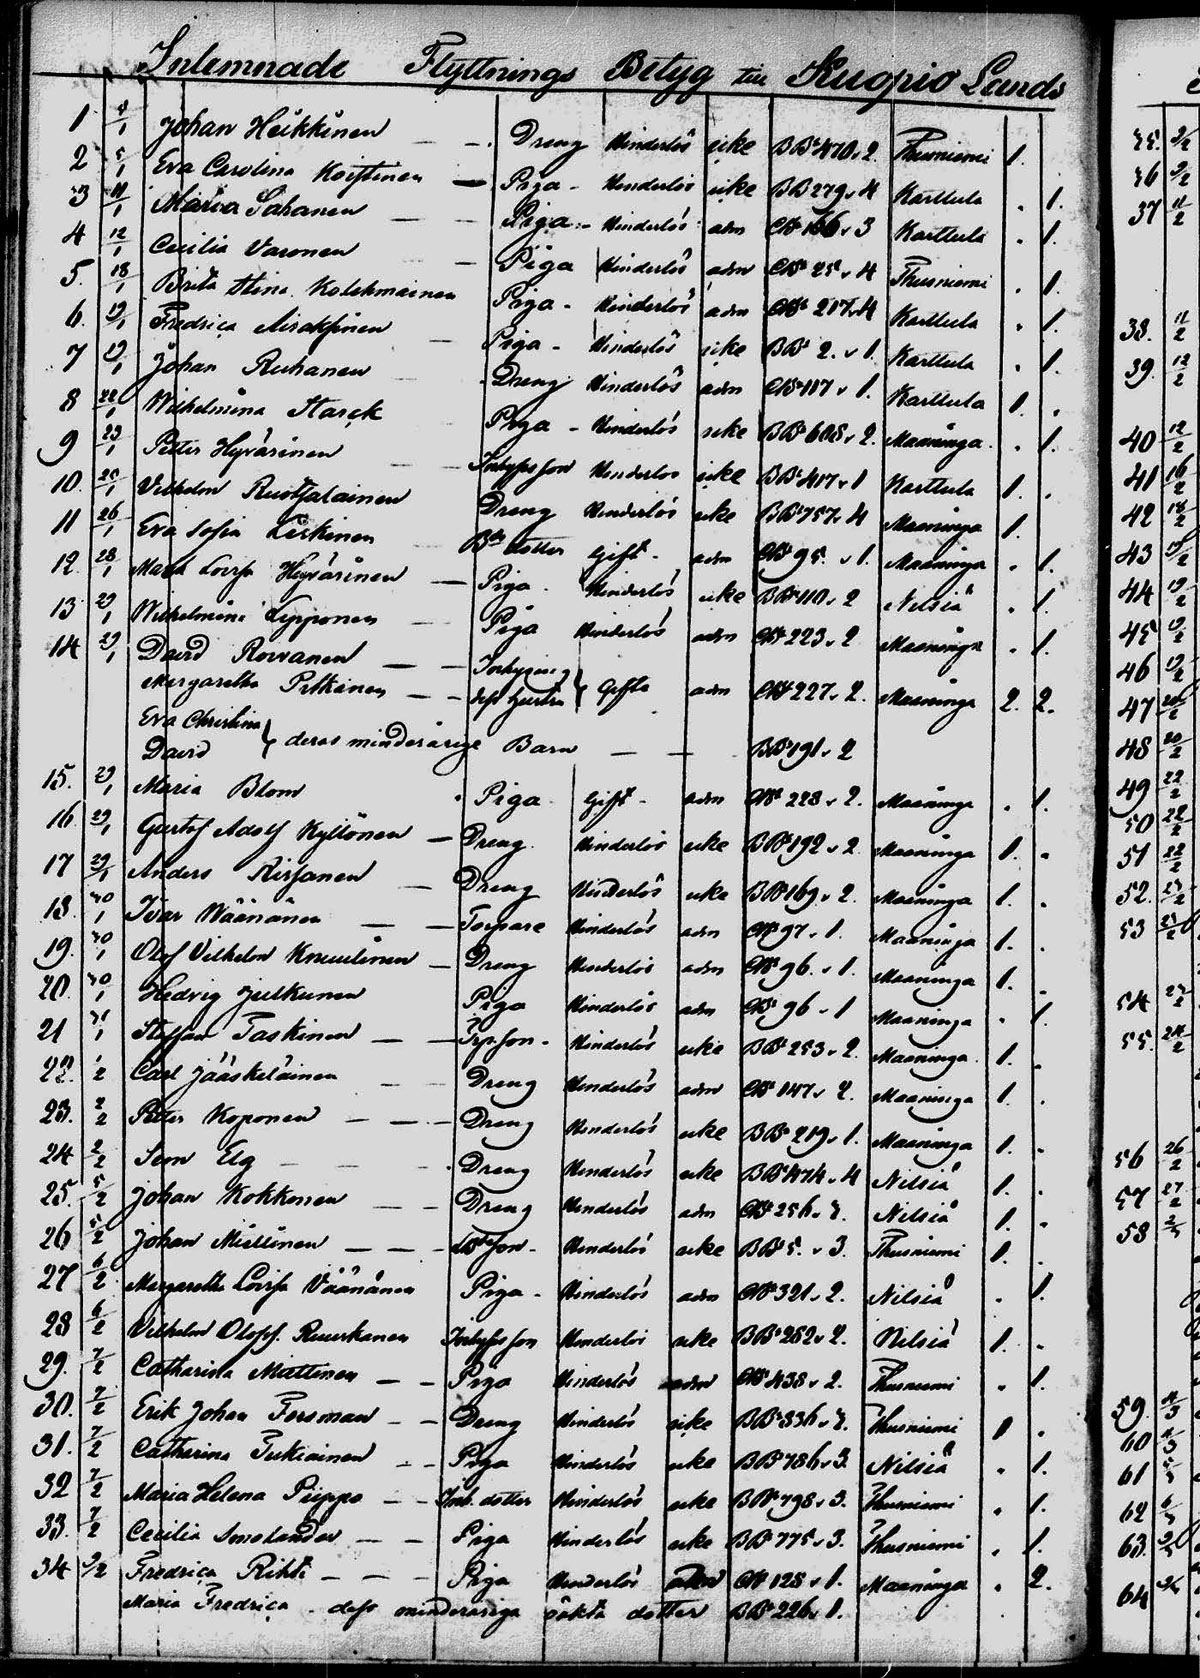 Inlemnade Flyttnings Betyg till Kuopio Lands
1 4/1 Johan Heikkinen Dreng Hinderlös icke BB 470 v 2 Thusniemi 1.
2 5/1 Eva Carolina Koistinen Piga Hinderlös icke BB 279 v 4 Karttula . 1.
3 11/1 Maria Sahanen Piga Hinderlös adm CB 166 v 3 Karttula . 1.
4 12/1 Cecilia Varonen Piga Hinderlös adm CB 25 v 4 Thusniemi . 1.
5. 18/1 Brita Stina Kolehmainen Piga Hinderlös adm CB 217 v 4 Karttula . 1.
6. 19/1 Fredrica Airaksinen Piga Hinderlös icke BB 2. v 1. Karttula . 1.
7 19/1 Johan Ruhanen Dreng Hinderlös adm CB 117 v 1. Karttula 1. .
8 22/1 Wilhelmina Starck Piga Hinderlös icke BB 608 v 2. Maaninga . 1.
9 23/1 Petter Hyvärinen Inhysson Hinderlös icke BB 417 v 1 Karttula 1. .
10. 25/1 Vilhelm Ruotsalainen Dreng Hinderlös icke BB 757 v 4 Maaninga 1.
11 26/1 Eva Sofia Leskinen dotter Gift adm CB 95. v 1. Maaninga . 1.
12. 28/1 Maria Lovisa Hyvärinen Piga Hinderlös icke BB 110 v 2 Nilsiä . 1.
13. 29/1 Wilhelmina Lipponen Piga Hinderlös adm CB 223 v 2 Maaninga . 1.
14 29/1 David Rovanen Inhysing
Margaretha Pitkänen dess hustru } Gifta adm CB 227 v 2. Maaninga 2. 2.
Eva Christina
David } deras minderårige Barn BB 191 v 2
15. 29/1 Maria Blom Piga Gift adm CB 228 v 2. Maaninga . 1.
16. 29/1 Gustaf Adolf Kyllönen Dreng Hinderlös icke BB 192 v 2 Maaninga 1. .
17 29/1 Anders Rissanen Dreng Hinderlös icke BB 169 v 2. Maaninga 1. .
18. 30/1 Ivar Wäänänen Torpare Hinderlös adm CB 97 v 1. Maaninga 1. .
19. 30/1 Olof Vilhelm Knuutinen Dreng Hinderlös adm CB 96. v 1. Maaninga 1. .
20. 30/1 Hedvig Julkunen Piga Hinderlös adm CB 96 v 1 Maaninga . 1.
21 31/1 Staffan Taskinen Trpson Hinderlös icke BB 253 v 2. Maaninga 1. .
22. 1/2 Carl Jääskeläinen Dreng Hinderlös adm CB 147 v 2. Maaninga 1. .
23. 2/2 Petter Koponen Dreng Hinderlös icke BB 219 v 1. Maaninga 1. .
24 2/2 Sem Elg Dreng Hinderlös icke BB 474 v 4 Nilsiä 1. .
25. 5/2 Johan Kokkonen Dreng Hinderlös adm CB 256 v Nilsiä 1. .
26 5/2 Johan Miettinen son Hinderlös icke BB 5. v 3. Thusniemi 1. .
27 6/2 Margaretha Lovisa Väänänen Piga Hinderlös adm CB 321 v 2. Nilsiä . 1.
28 6/2 Vilhelm Olofs. Ruuskanen Inhysson Hinderlös icke BB 252 v 2. Nilsiä 1. .
29. 7/2 Catharina Miettinen Piga Hinderlös adm CB 438 v 2. Thusniemi . 1.
30. 7/2 Erik Johan Forsman Dreng Hinderlös icke BB 336 v Thusniemi 1 .
31. 7/2 Catharina Tukiainen Piga Hinderlös icke BB 786 v 3. Nilsiä . 1.
32 7/2 Maria Helena Piippo Inh. dotter Hinderlös icke BB 798 v 3. Thusniemi . 1.
33. 7/2 Cecilia Smolander Piga Hinderlös icke BB 775 v 3. Thusniemi . 1.
34 9/2 Fredrica Rihti Piga Hinderlös adm CB 128 v 1. Maaninga . 2.
Maria Fredrica dess minderåriga oäkta dotter BB 226 v 1.
35.
36
37 11/2
38. 11/2
39. 12/2
40 12/2
41 16/2
42 18/2
43 19/2
44 19/2
45 19/2
46 19/2
47 20/2
48 20/2
49 22/2
50 22/2
51 22/2
52.
53
54
55.
56 26/2
57 27/2
58
59.
60
61
62
63.
64